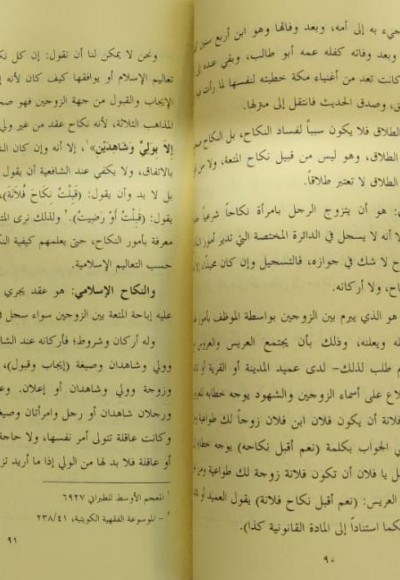 جيء به إلى أمه، وبعد وفاتها وهو ابن أربع سنين
وبعد وفاته كفله عمه أبو طالب، وبقي عنده إلى
كانت تعد من أغنياء مكة خطبته لنفسها لما رأت فيه
وصدق الحديث فانتقل إلى منزلها.
الطلاق فلا يكون سبباً لفساد النكاح، بل النكاح
الطلاق، وهو ليس من قبيل نكاح المتعة، ولا من
الطلاق لا تعتبر طلاقاً.
هو أن يتزوج الرجل بامرأة نكاحاً شرعياً
لا أنه لا يسجل في الدائرة المختصة التي تدير أمور
ح لا شك في جوازه، فالتسجيل وإن كان
ح، ولا أركانه.
هو الذي يبرم بين الزوجين بواسطة الموظف بأمور
له ويعلنه، وذلك بأن يجتمع العريس والعروس
م طلب لذلك- لدى عميد المدينة أو القرية أو
لاع على أسماء الزوجين والشهود يوجه خطابه
فلانة أن يكون فلان ابن فلان زوجاً لك طواعية
في الجواب بكلمة (نعم أقبل نكاحه) يوجه
ل يا فلان أن تكون فلانة زوجة لك طواعية
العريس: (نعم أقبل نكاح فلانة) يقول العميد أو
كما استناداً إلى المادة القانونية كذا).
٩٠
ونحن لا يمكن لنا أن نقول: إن كل
تعاليم الإسلام أو يوافقها كيف كان لأنه
الإيجاب والقبول من جهة الزوجين فهو
المذاهب الثلاثة، لأنه نكاح عقد من غير ولي
إلا بولي وشاهدين»١، إلا أنه وإن كان
بالاتفاق، ولا يكفي عند الشافعية أن يقول
بل لا بد وأن يقول: (قبلت نكاح فلانة)،
يقول: (قبلت أو رضيت).٢ ولذلك نرى
معرفة بأمور النكاح، حتى يعلمهم كيفية
حسب التعاليم الإسلامية.
والنكاح الإسلامي: هو عقد يجري
عليه إباحة المتعة بين الزوجين سواء سجل في
وله أركان وشروط؛ فأركانه عند
وولي وشاهدان وصيغة (إيجاب وقبول)،
وزوجة وولي وشاهدان أو إعلان. وعند
ورجلان شاهدان أو رجل وامرأتان
وكانت عاقلة تتولى أمر نفسها، ولا حاجة
أو عاقلة فلا بد لها من الولي إذا ما أريد
١ المعجم الأوسط للطبراني ٦٩٢٧
٢ - الموسوعة الفقهية الكويتية، ٢٣٨/٤١
٩١